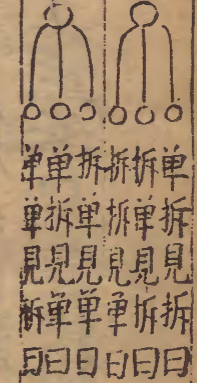 单拆見拆曰
拆单見拆曰
拆拆見单曰
拆单見单曰
单拆見单曰
单单見拆曰